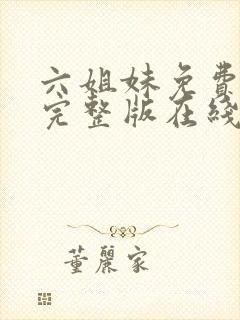 六姐妹免费
完整版在线
董丽家